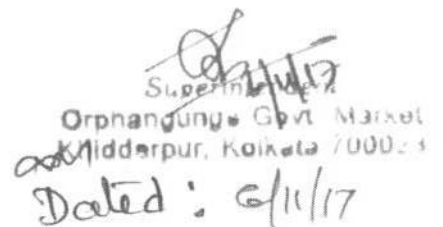 Superintendent
Orphangunge Govt Market
Khidderpur, Kolkata 700023
Dated : 6/11/17